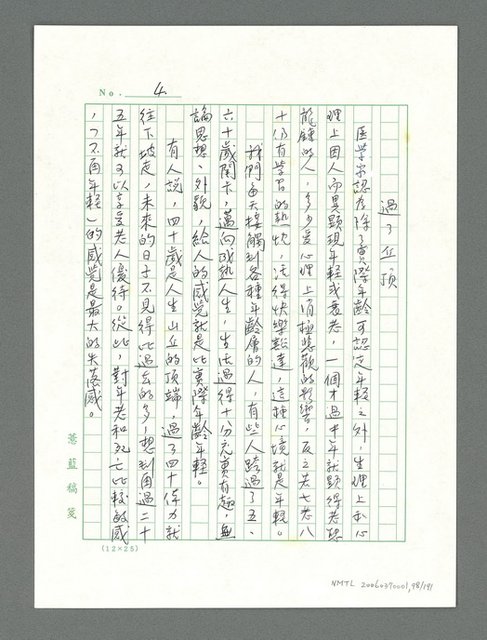 No. 4
過了丘頂
醫學家認為除了實際年齡可認定年輕之外，生理上和心
理上因人而異顯現年輕或衰老，一個才過中年就顯得老態
龍鍾的人，多少受心理上消極悲觀的影響，反之若七老八
十仍有學習的熱忱，活得快樂豁達，這種心境就是年輕。
我們每天接觸到各種年齡層的人，有些人跨過了五、
六十歲關卡，邁向成熟人生，生活過得十分充實有趣，無
論思想、外貌，給人的感覺就是比實際年齡年輕。
有人說，四十歲是人生山丘的頂端，過了四十倖力就
往下坡走，未來的日子不見得比過去的多，想到再過二十
五年就可以享受老人優待。從此，對年老和死亡比較敏感
，「不再年輕」的感覺是最大的失落感。
薏藍稿箋
(12×25)
NMTL 20060370001,98/191